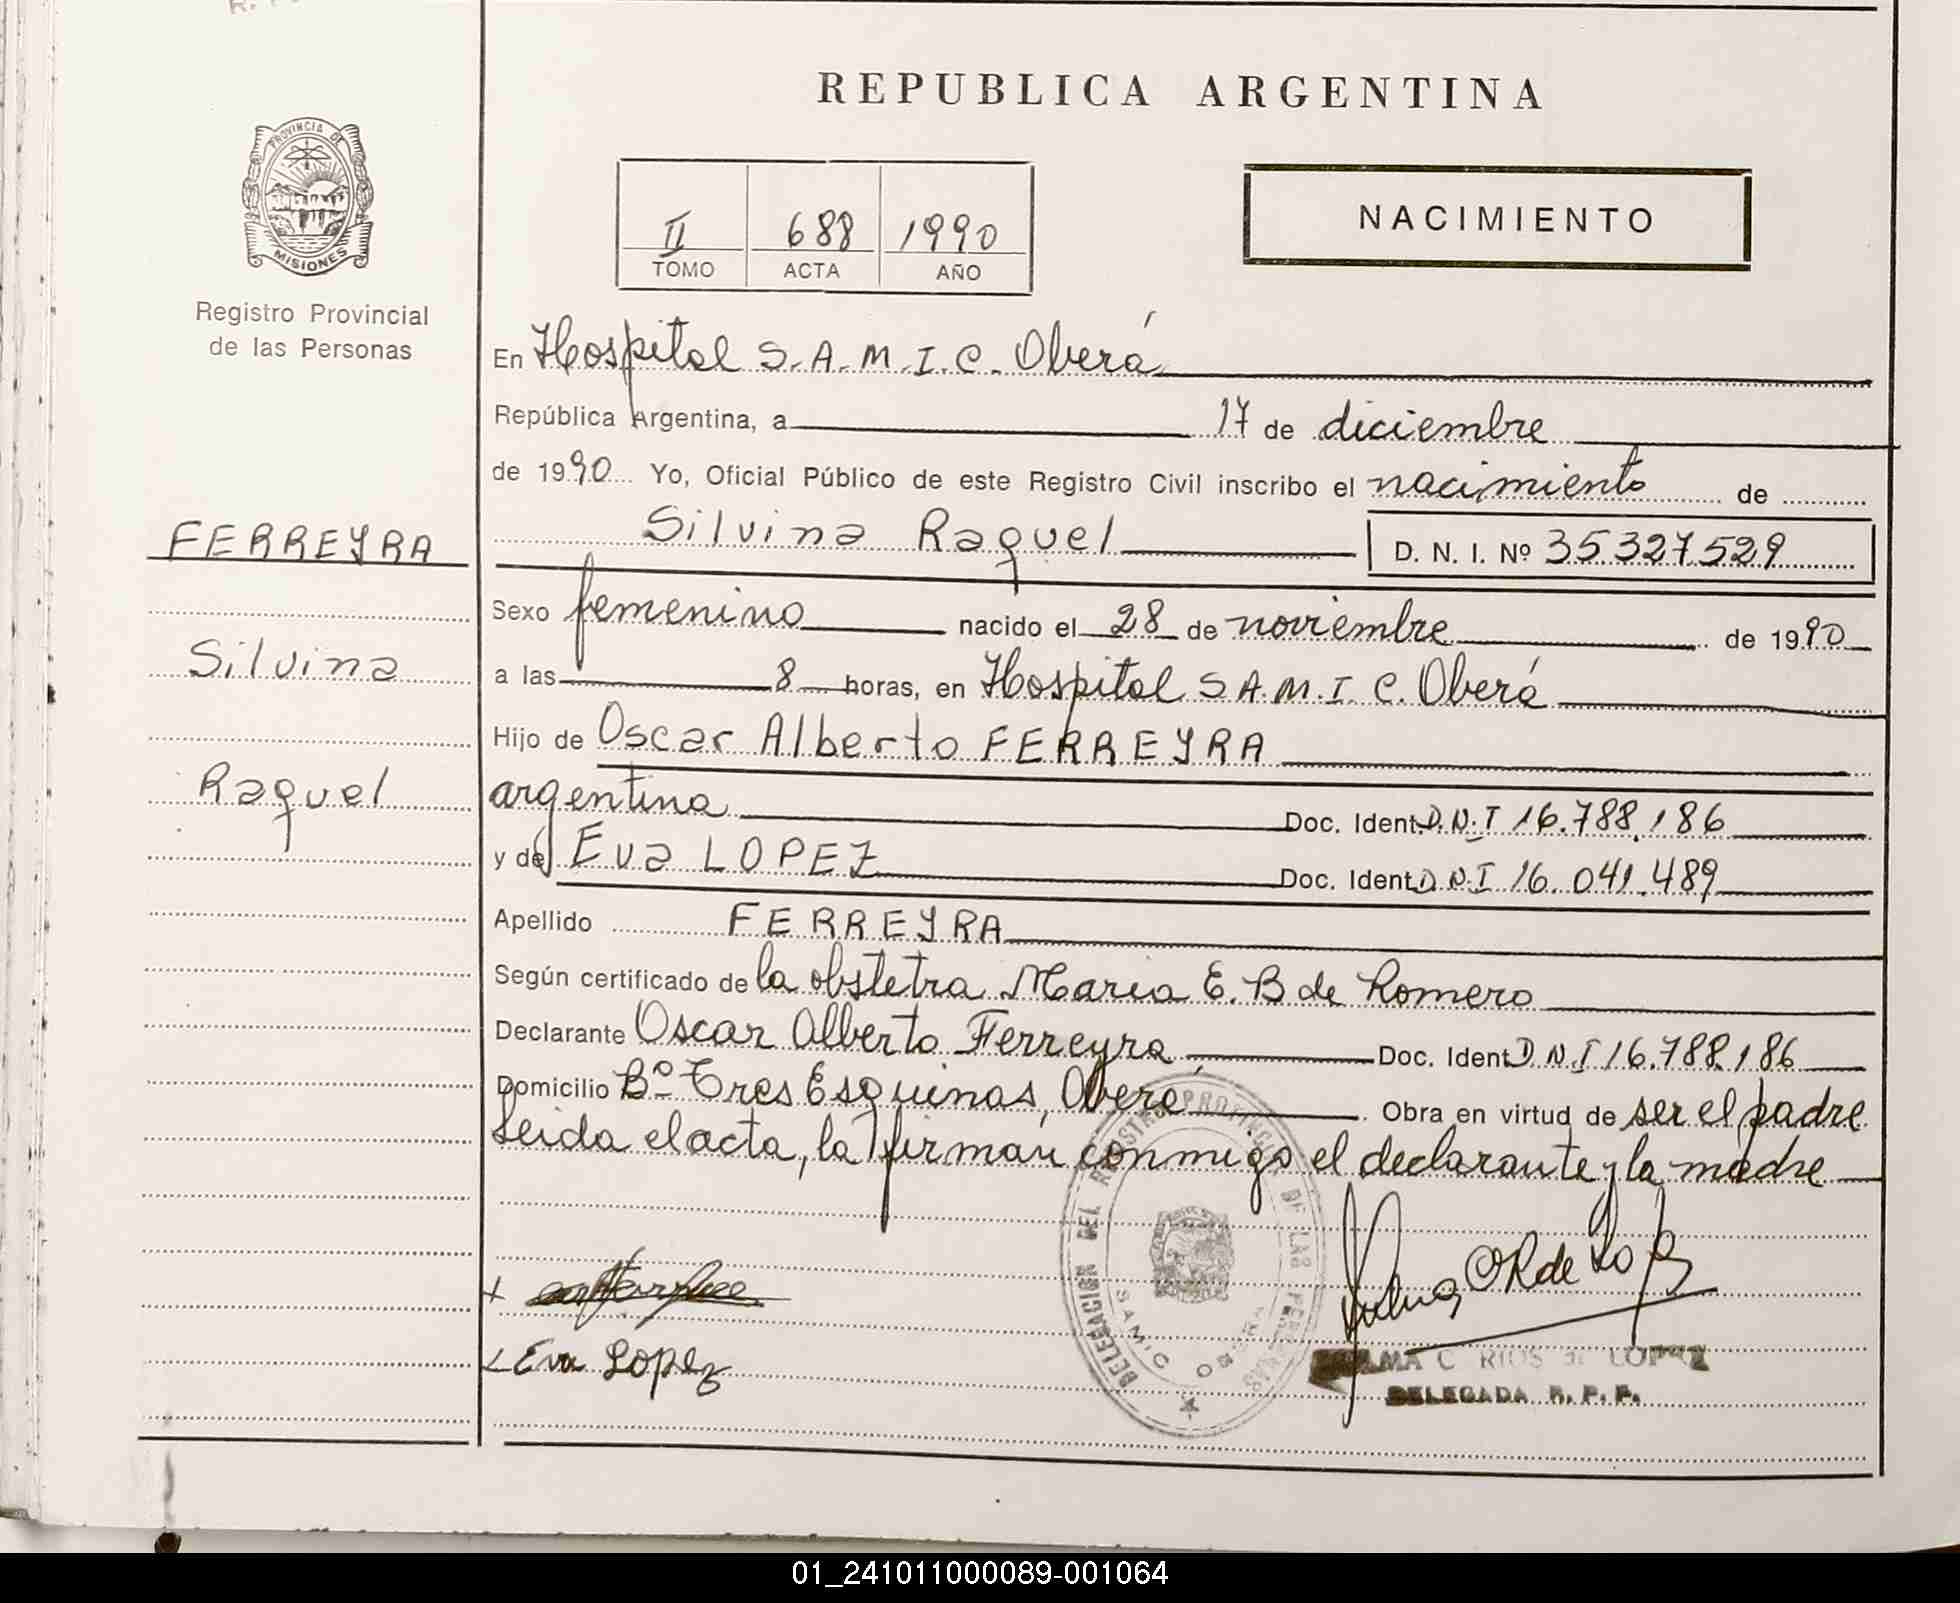 REPUBLICA ARGENTINA
PROVINCIA DE
MISIONES
Registro Provincial
de las Personas
II 688 1990
TOMO ACTA AÑO
NACIMIENTO
En Hospital S.A.M.I.C. Oberá
República Argentina, a 17 de diciembre
de 1990 Yo, Oficial Público de este Registro Civil inscribo el nacimiento de
Silvina Raquel D. N. I. Nº 35.327.529
FERREYRA
Silvina
Raquel
Sexo femenino nacido el 28 de noviembre de 1990
a las 8 horas, en Hospital S.A.M.I.C. Oberá
Hijo de Oscar Alberto FERREYRA
argentina Doc. Ident. D.N.I 16.788.186
y de Eva LOPEZ Doc. Ident. D.N.I 16.041.489
Apellido FERREYRA
Según certificado de la obstetra Maria E. B de Romero
Declarante Oscar Alberto Ferreyra Doc. Ident D.N.I 16.788.186
Domicilio Bº Tres Esquinas, Oberá. Obra en virtud de ser el padre
Leida el acta, la firman conmigo el declarante y la madre
DELEGACION DEL REGISTRO PROVINCIAL DE LAS PERSONAS
SAMIC OBERA
Eva Lopez
C RIOS de LOPEZ
DELEGADA R. P. P.
01_241011000089-001064